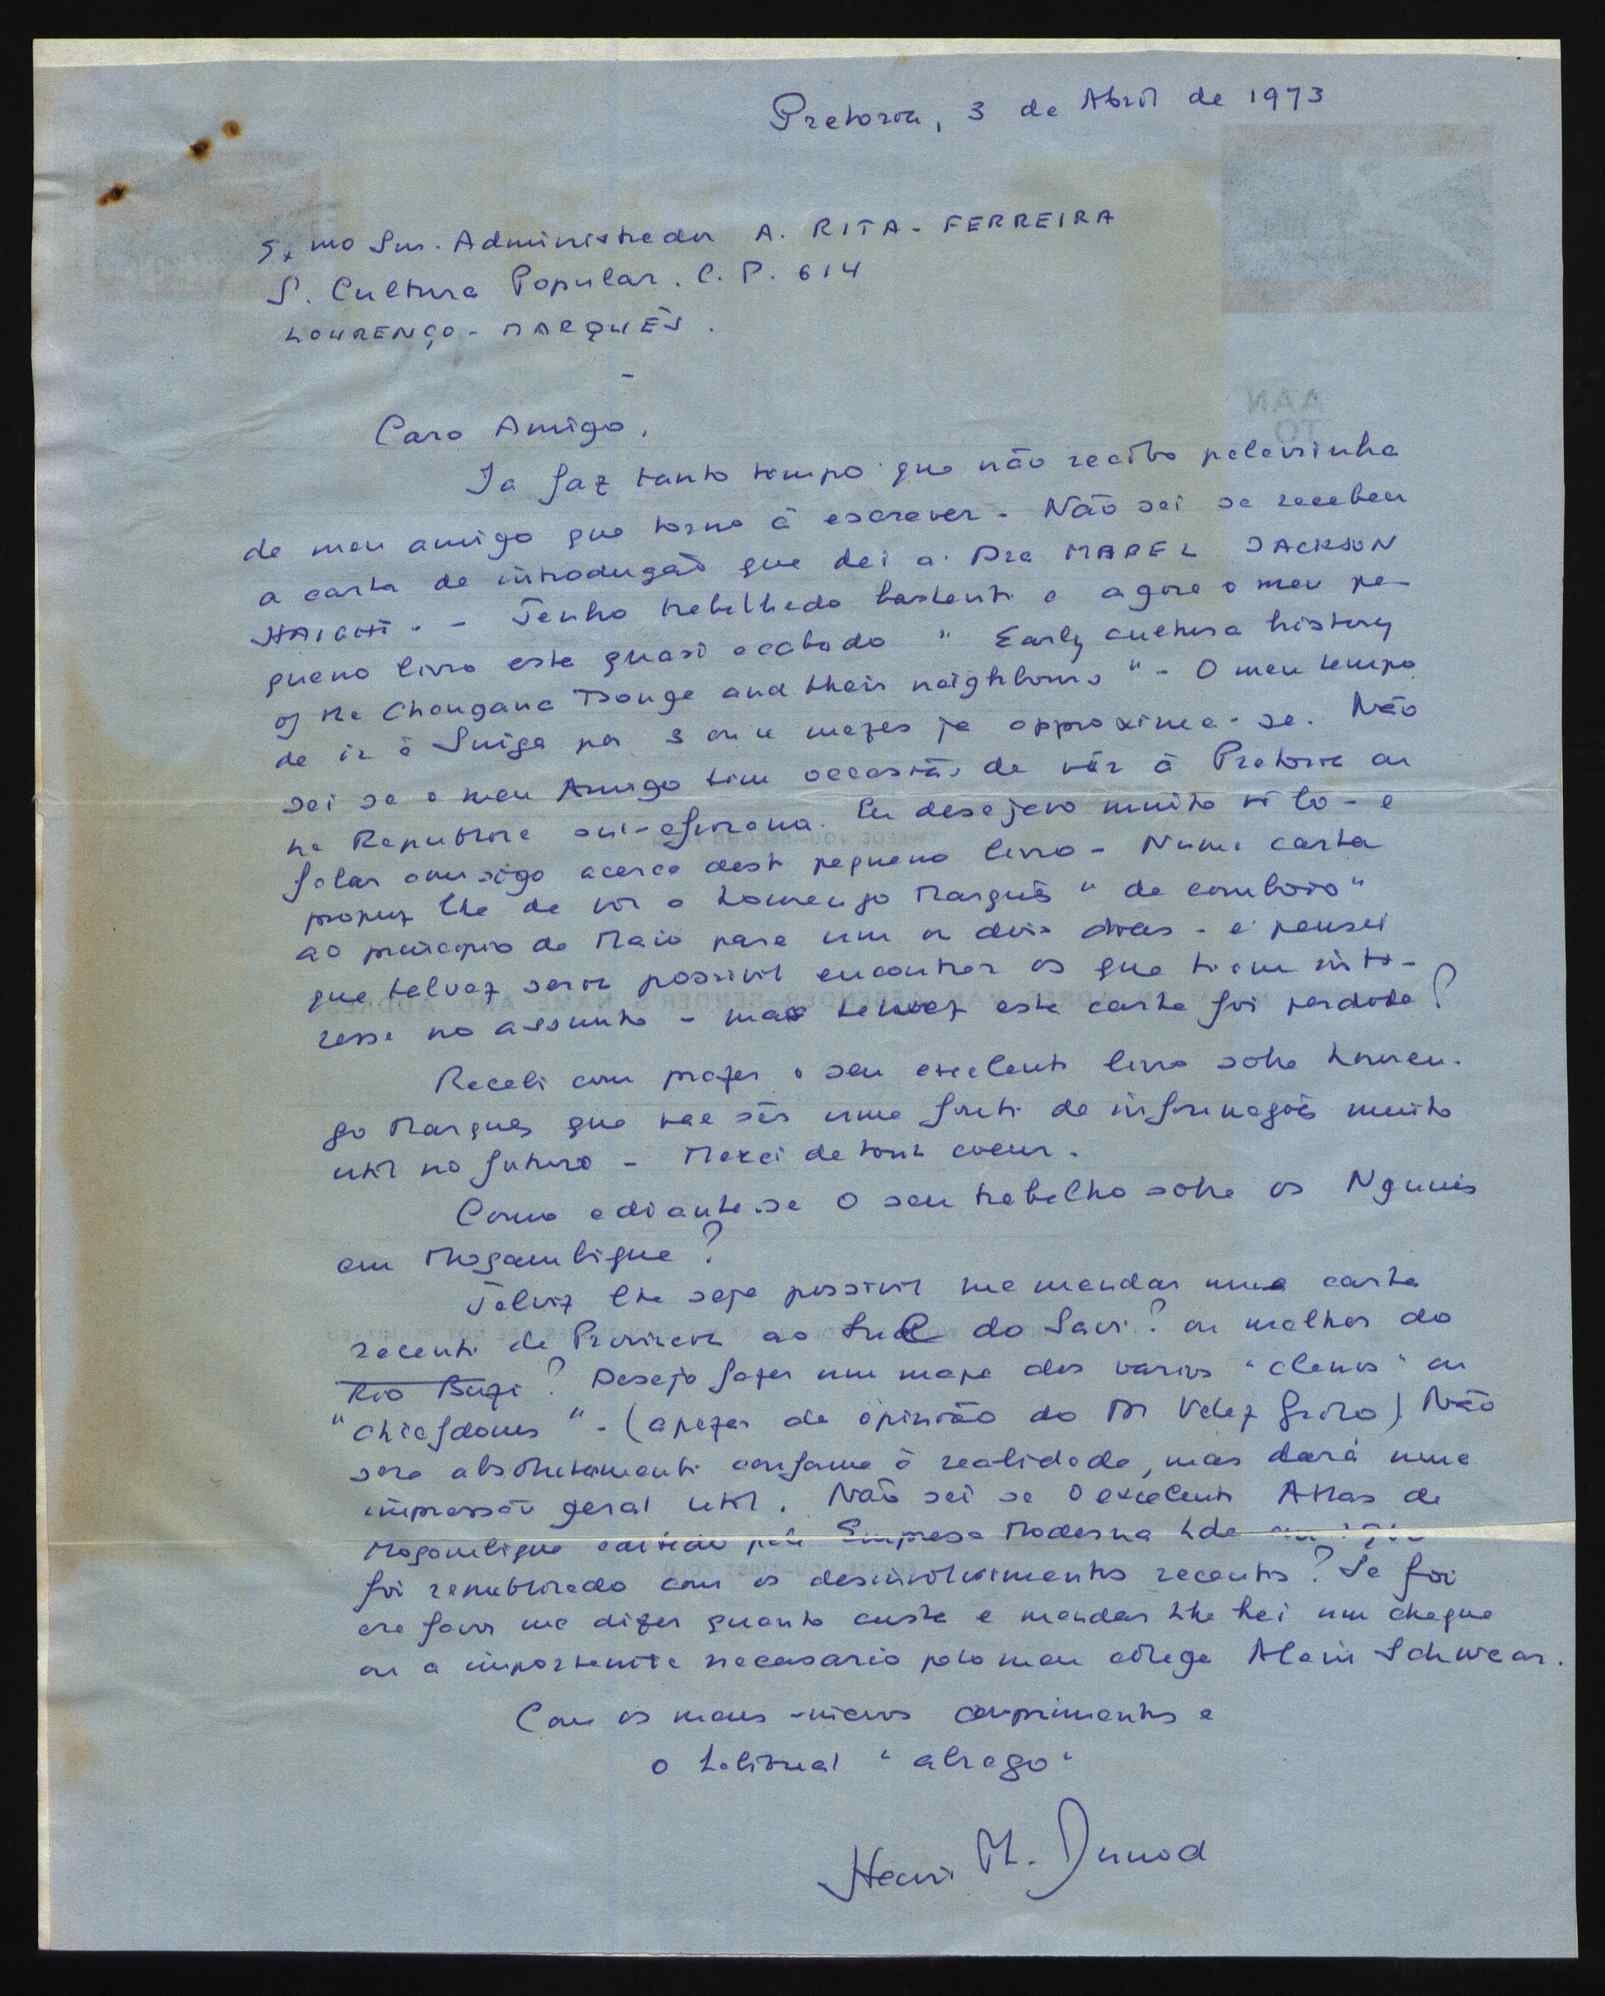 Pretoria, 3 de Abril de 1973
Exmo Snr. Administrador A. RITA-FERREIRA
S. Cultura Popular. C.P. 614
LOURENÇO-MARQUÊS.
-
Caro Amigo,
Ja faz tanto tempo que não recibo palavrinha
de meu amigo que torno á escrever - Não sei se recebeu
a carta de introdução que dei a Dra MABEL JACKSON
HAIGHT. - Tenho trabalhado bastante e agora o meu pe-
queno livro esta quasi acabado " Early cultura history
of the Changana Tsonga and their neighbours " - O meu tempo
de ir á Suiça por 3 ou 4 mezes ja approxima-se. Não
sei se o meu Amigo tem occasião de vir á Pretoria ou
na Republica sul-africana. Eu desejava muito vê lo - e
falar comsigo acerca deste pequeno livro - Numa carta
propuz lhe de vir a Lourenço Marquês " de comboio "
ao principio de Maio para um ou dois dias - e pensei
que talvez seria possivil encontrar os que tiem inte-
resse no assunto - mas talvez esta carta foi perdida ?
Recebi com prazer o seu excelente livro sobre Louren-
ço Marques que vae sêr uma fonte de informações muito
util no futuro - Merci de tout coeur.
Como adiante-se o seu trabalho sobre os Ngunis
em Moçambique ?
Talviz lhe seja possivil me mandar uma carta
recente da Provincia ao Sul do Savi ? ou melhor do
Rio Buzi ? Desejo fazer um mapa dos varios "clanos" ou
"chiefdoms" - (apezar da opinião do Dr Velez Grilo) Não
sera absolutamente conforme á realidade, mas dará uma
impressão geral util. Não sei se o excelente Atlas de
Moçambique editido pela Empresa Moderna Lda
foi republicado com os desinvolvimentos recentes ? Se foi
era favor me dizer quanto custa e mandar lhe hei um cheque
ou a importancia necasario polo meu colega Alain Schwear.
Com os meus comprimentos e
o habitual "abraço"
Henri Ph. Junod